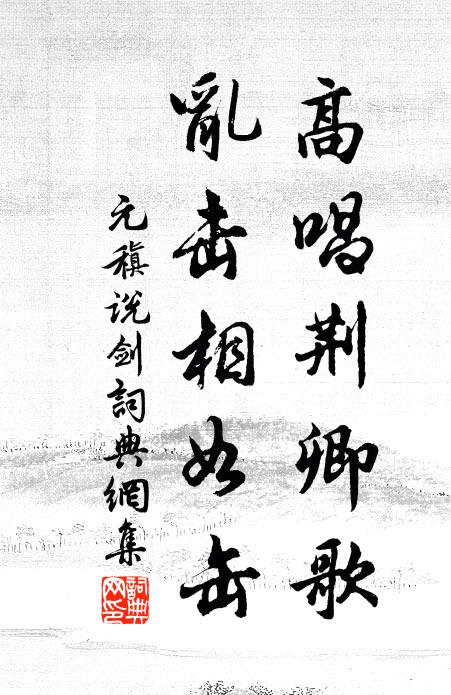 高唱荆卿歌
亂击相如缶
元稹说剑詞典網集
詞典網印